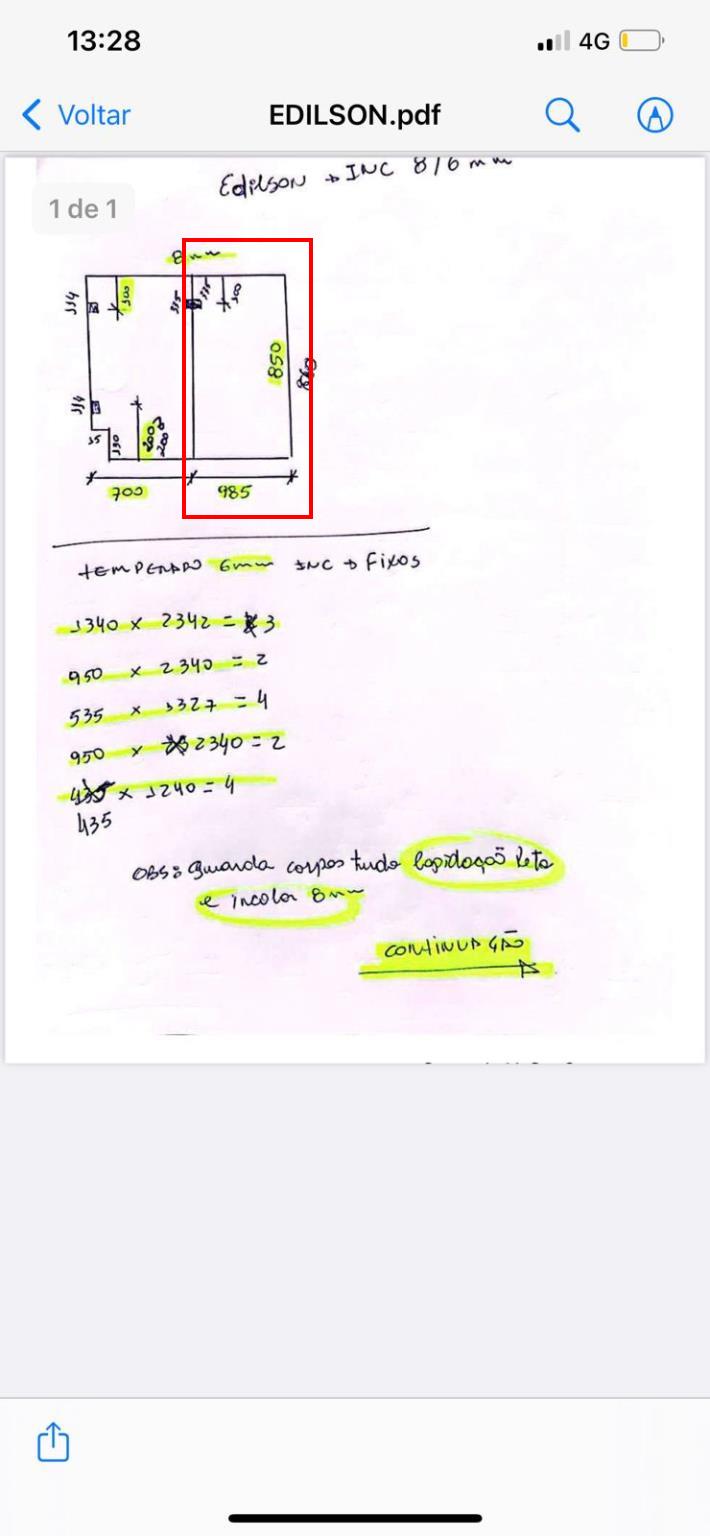 13:28
4G
Voltar
EDILSON.pdf
1 de 1
Edilson → INC 8/6 mm
8mm
114
100
115
115
100
850
114
35
130
200
200
700
985
TEMPERADO 6mm INC → Fixos
1340 x 2342 = 3
950 x 2340 = 2
535 x 1327 = 4
950 x 2340 = 2
x 1240 = 4
435
OBS: guarda corpos tudo lapidação Reta
e incolor 8mm
CONTINUAÇÃO